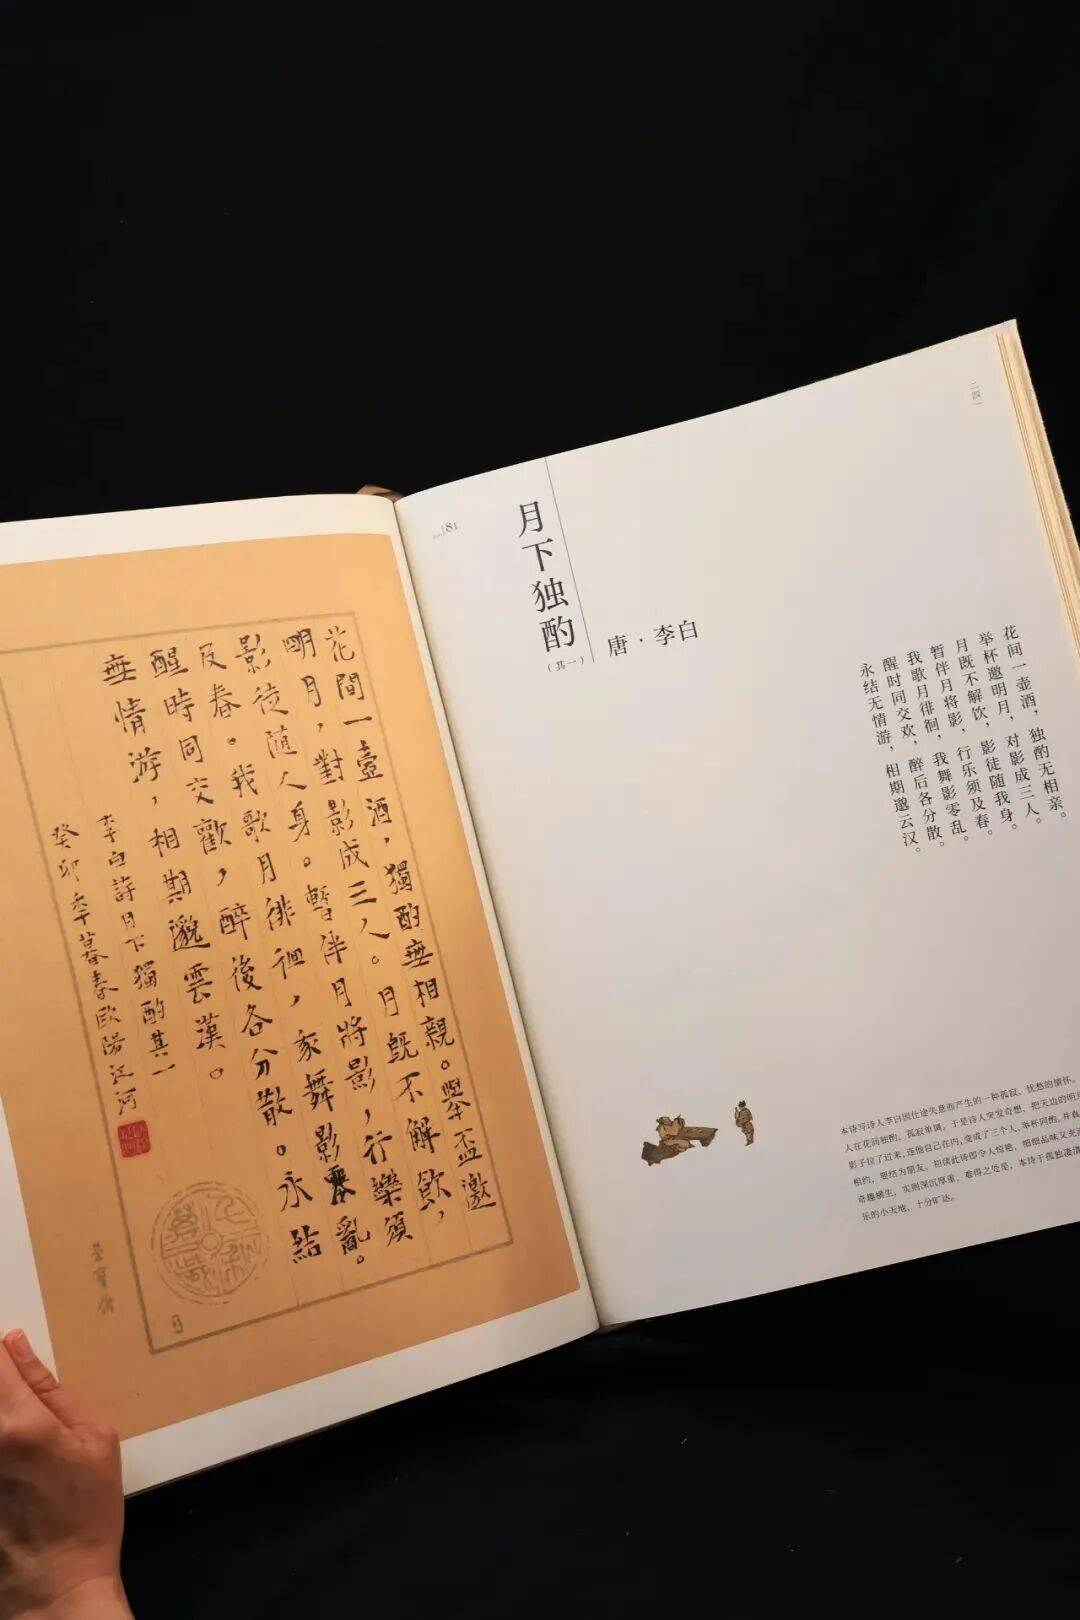 花間一壺酒，獨酌無相親。舉盃邀
明月，對影成三人。月既不解飲，
影徒隨人身。暫伴月將影，行樂須
及春。我歌月徘徊，我舞影零亂。
醒時同交歡，醉後各分散。永結
無情游，相期邈雲漢。
李白詩月下獨酌其一
癸卯年暮春歐陽江河
榮寶齋
二四一
81
月下独酌
（其一）
唐·李白
花间一壶酒，独酌无相亲。
举杯邀明月，对影成三人。
月既不解饮，影徒随我身。
暂伴月将影，行乐须及春。
我歌月徘徊，我舞影零乱。
醒时同交欢，醉后各分散。
永结无情游，相期邈云汉。
本诗写诗人李白因仕途失意而产生的一种孤寂、忧愁的情怀。
人在花间独酌，孤寂单调，于是诗人突发奇想，把天边的明月
影子拉了过来，连他自己在内，变成了三个人，举杯同酌，并真
相约，要结为朋友。初读此诗即令人惊艳，细细品味又充满
奇趣横生，实则深沉厚重。难得之处是，本诗于孤独凄清
乐的小天地，十分旷达。